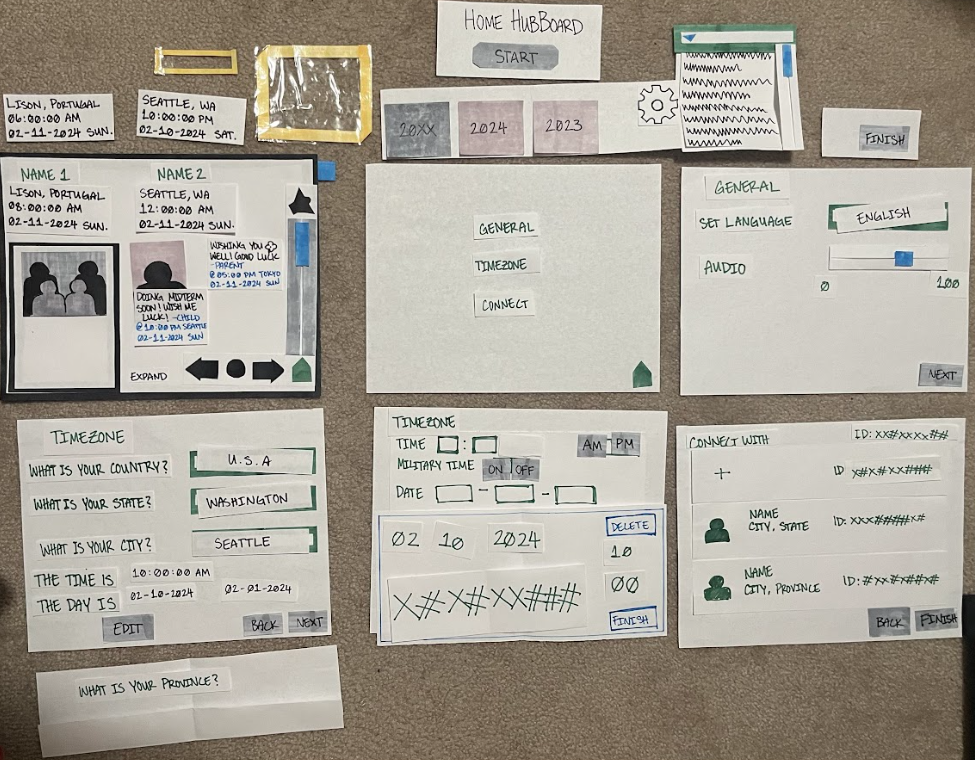 HOME HUBBOARD
START
LISON, PORTUGAL
06:00:00 AM
02-11-2024 SUN.
SEATTLE, WA
10:00:00 PM
02-10-2024 SAT.
20XX
2024
2023
FINISH
NAME 1
LISON, PORTUGAL
08:00:00 AM
02-11-2024 SUN.
NAME 2
SEATTLE, WA
12:00:00 AM
02-11-2024 SUN.
WISHING YOU
WELL! GOOD LUCK
-PARENT
@05:00 PM TOKYO
02-11-2024 SUN
DOING MIDTERM
SOON! WISH ME
LUCK! -CHILD
@10:00 PM SEATTLE
02-11-2024 SUN
EXPAND
GENERAL
TIMEZONE
CONNECT
GENERAL
SET LANGUAGE
ENGLISH
AUDIO
0
100
NEXT
TIMEZONE
WHAT IS YOUR COUNTRY?
U.S.A
WHAT IS YOUR STATE?
WASHINGTON
WHAT IS YOUR CITY?
SEATTLE
THE TIME IS
10:00:00 AM
THE DAY IS
02-10-2024
02-01-2024
EDIT
BACK
NEXT
TIMEZONE
TIME
:
AM
PM
MILITARY TIME
ON
OFF
DATE - -
02
10
2024
DELETE
10
00
X#X#XX###
FINISH
CONNECT WITH
ID: XX#XXXX##
+
ID X#X#XX###
NAME
CITY, STATE
ID: XXX####X#
NAME
CITY, PROVINCE
ID: #XX#X##X#
BACK
FINISH
WHAT IS YOUR PROVINCE?